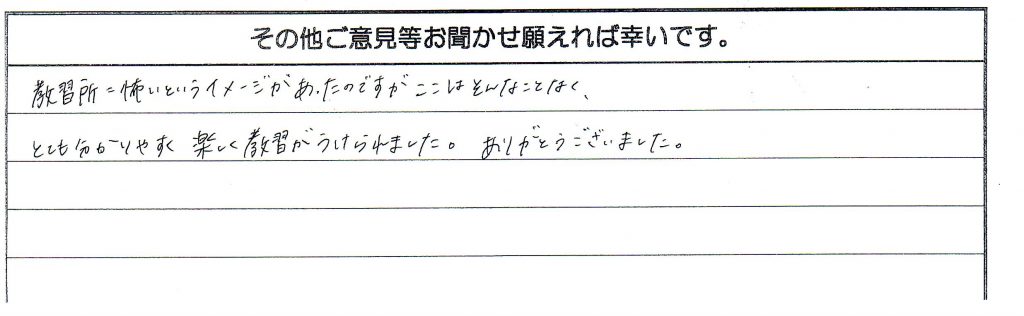 その他ご意見等お聞かせ願えれば幸いです。
教習所=怖いというイメージがあったのですがここはそんなことなく、
とても分かりやすく楽しく教習がうけられました。ありがとうございました。